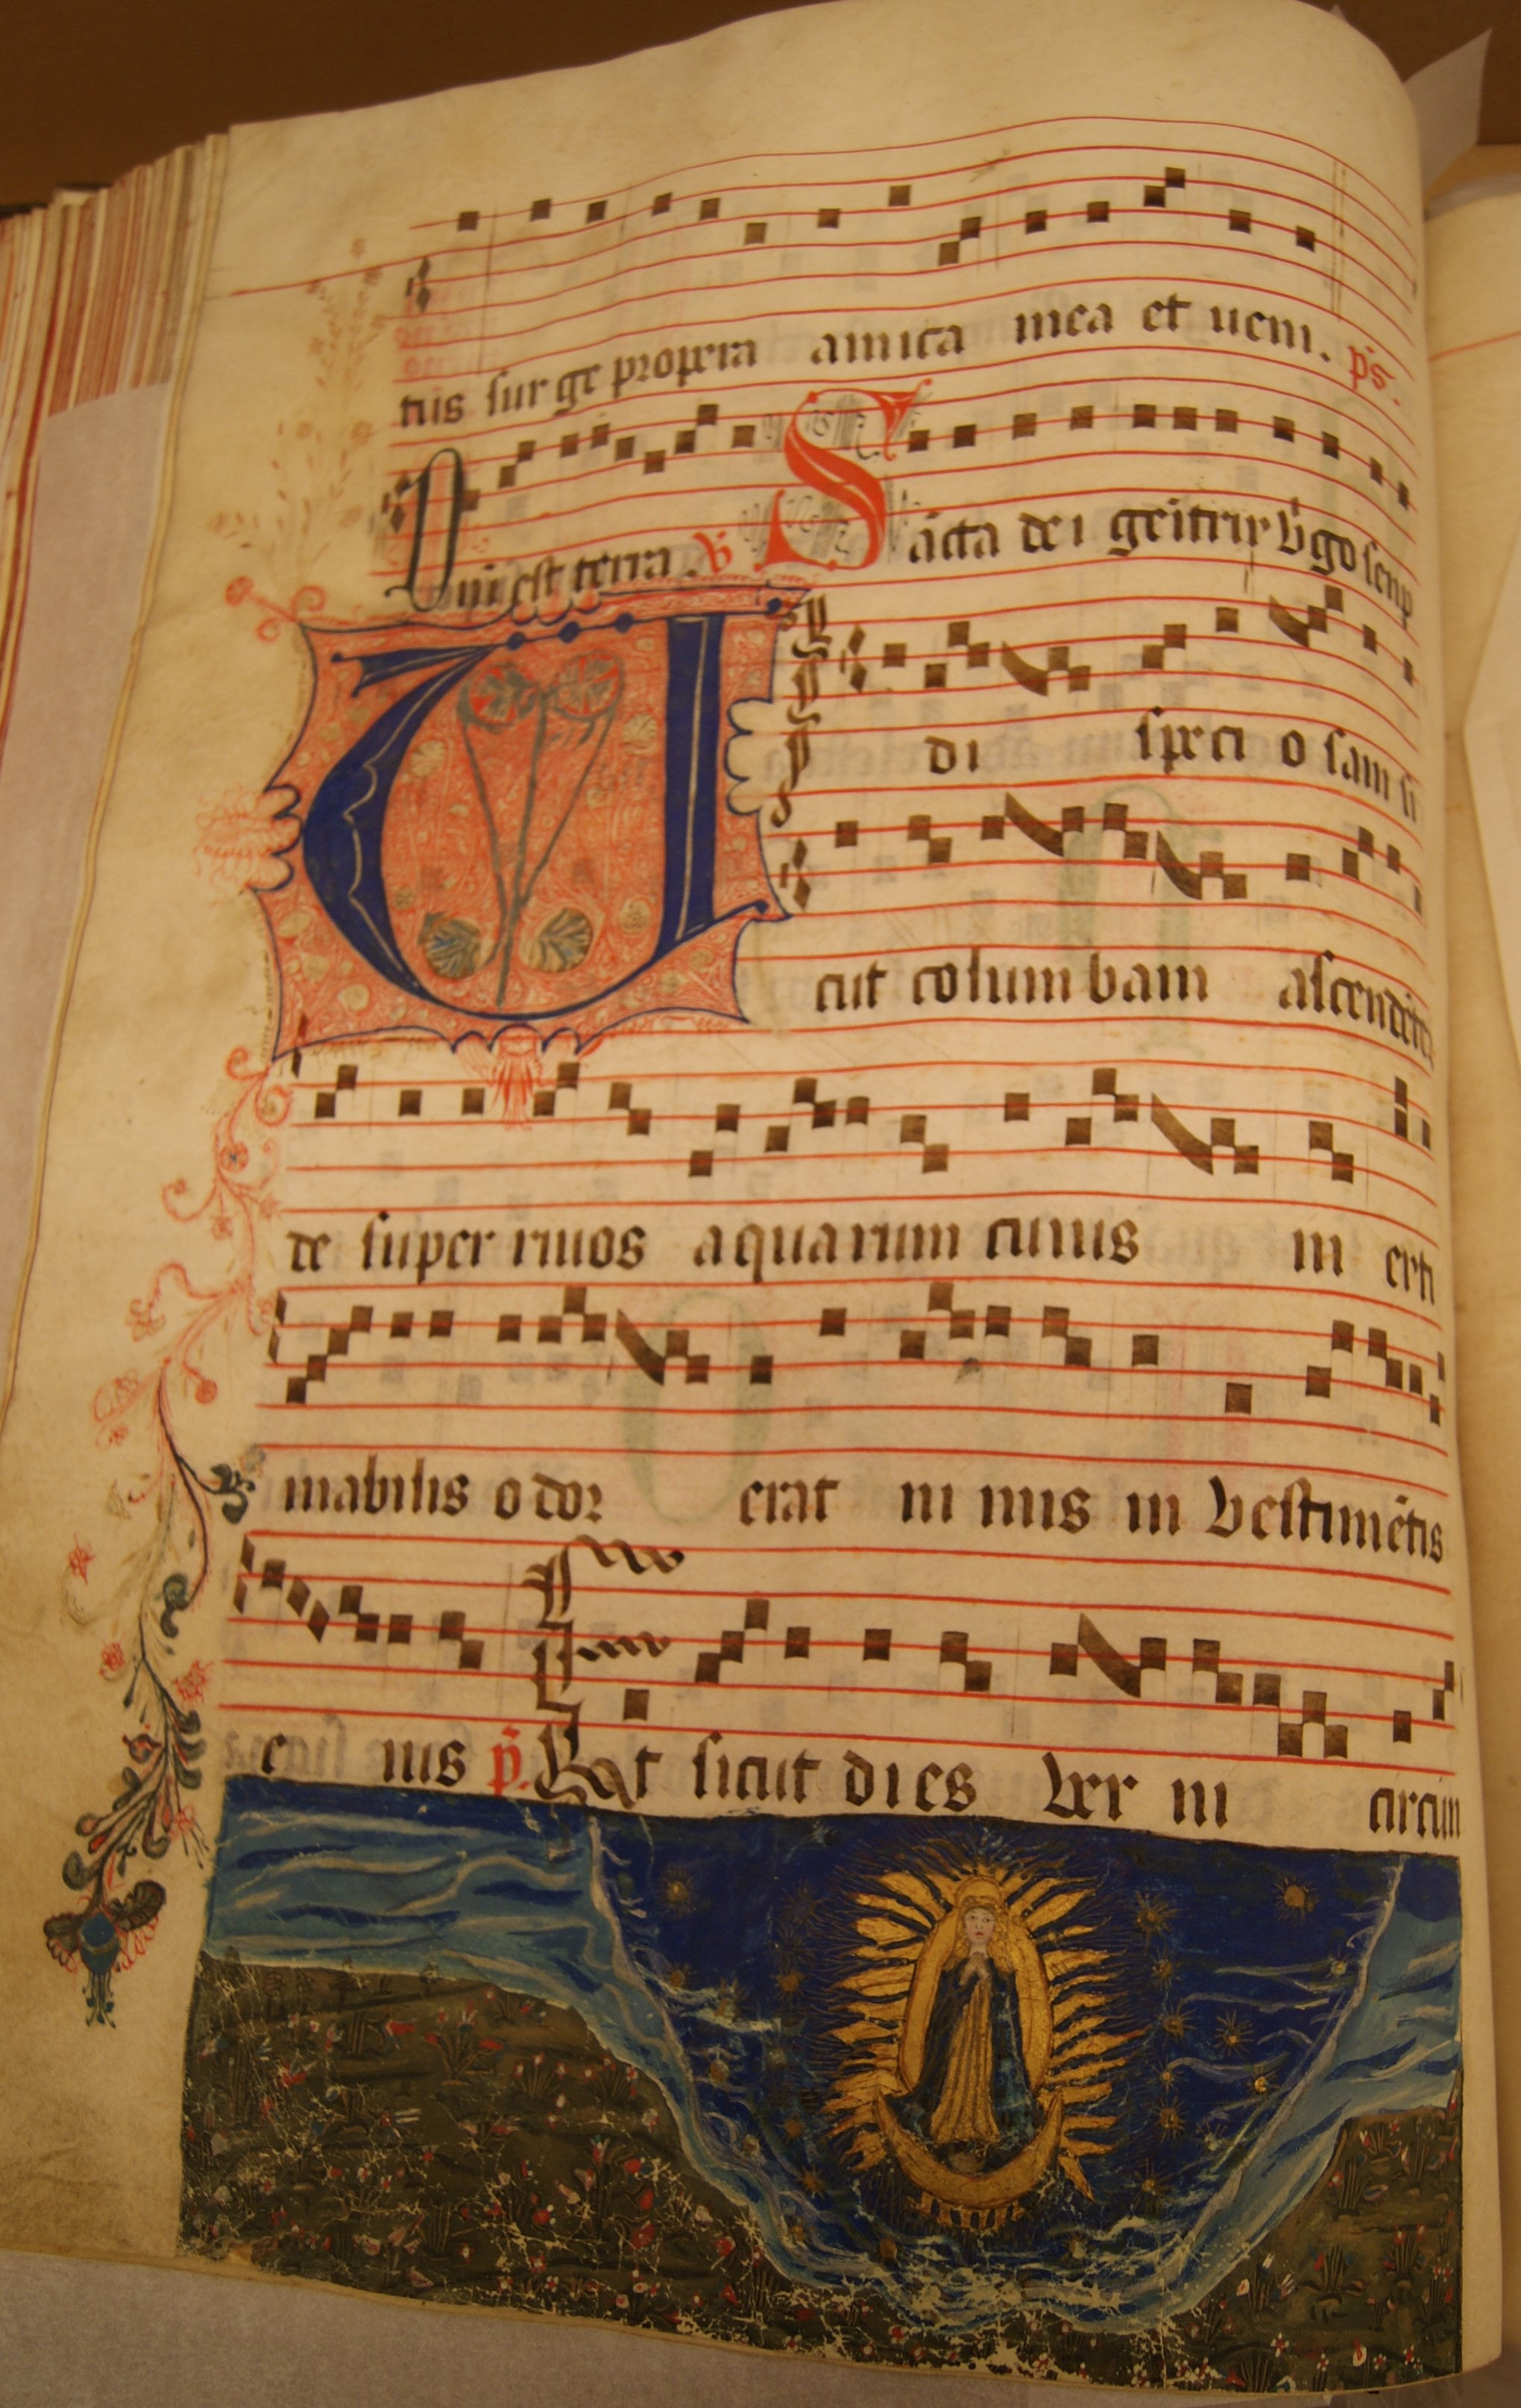 tus sur ge propera amica mea et ueni. ps.
Dñi est terra. v̄ Sācta dei geītrix v̄go semp
Vi di speci o sam si
cut columbam ascendētē
de super riuos aquarum cuius in exti
mabilis odor erat ni mis in vestimētis
e ius p̄. Et sicut dies ver ni circūn